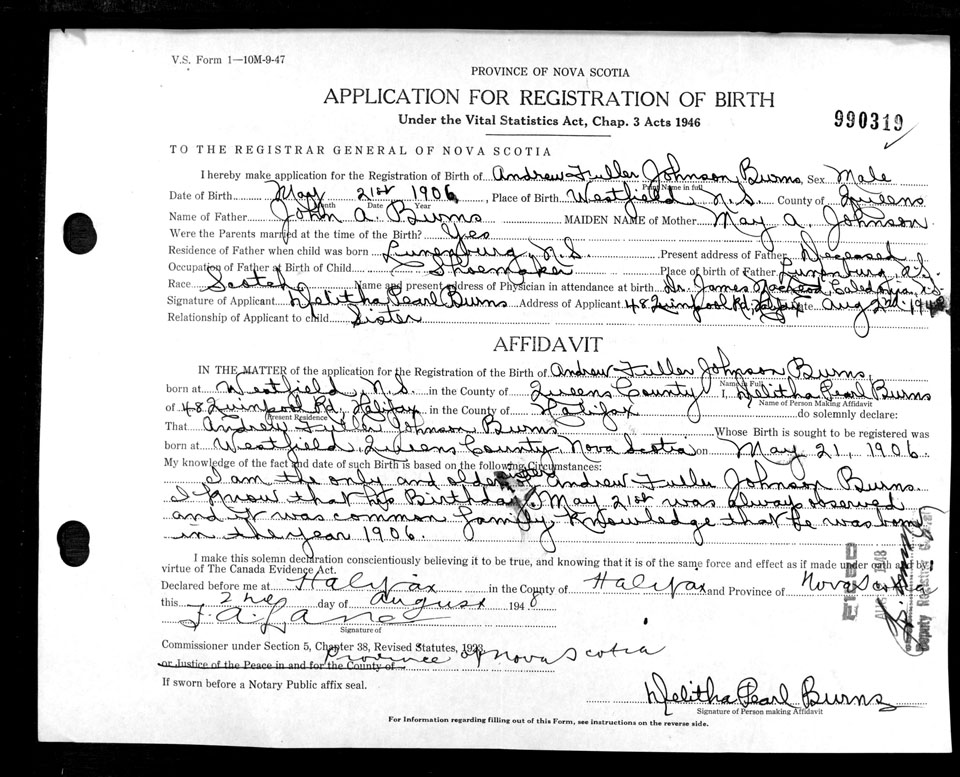 V.S. Form 1—10M-9-47
PROVINCE OF NOVA SCOTIA
APPLICATION FOR REGISTRATION OF BIRTH
Under the Vital Statistics Act, Chap. 3 Acts 1946
990319
TO THE REGISTRAR GENERAL OF NOVA SCOTIA
I hereby make application for the Registration of Birth of Andrew Fuller Johnson Burns, Sex Male
Print Name in full
Date of Birth May 21st 1906, Place of Birth Westfield N.S. County of Queens
Month Date Year
Name of Father John A. Burns MAIDEN NAME of Mother May A. Johnson
Were the Parents married at the time of the Birth? Yes
Residence of Father when child was born Lunenburg, N.S. Present address of Father Deceased
Occupation of Father at Birth of Child Shoemaker Place of birth of Father Lunenburg, N.S.
Race Scotch Name and present address of Physician in attendance at birth Dr. James Caledonia, N.S.
Signature of Applicant Melitha Pearl Burns Address of Applicant 48 Quinpool Rd, Halifax Date Aug 2nd 1948
Relationship of Applicant to child Sister
AFFIDAVIT
IN THE MATTER of the application for the Registration of the Birth of Andrew Fuller Johnson Burns,
Name in Full
born at Westfield, N.S. in the County of Queens County I, Melitha Pearl Burns
Name of Person Making Affidavit
of 48 Quinpool Rd, Halifax, in the County of Halifax do solemnly declare:
Present Residence
That Andrew Fuller Johnson Burns Whose Birth is sought to be registered was
born at Westfield, Queens County, Nova Scotia on May 21, 1906.
My knowledge of the fact and date of such Birth is based on the following Circumstances:
I am the only and older sister of Andrew Fuller Johnson Burns.
I know that his Birthday May 21st was always observed
and it was common family knowledge that he was born
in the year 1906.
I make this solemn declaration conscientiously believing it to be true, and knowing that it is of the same force and effect as if made under oath and by
virtue of The Canada Evidence Act.
Declared before me at Halifax in the County of Halifax and Province of Nova Scotia
this 2nd day of August 1948
F. A. Lane
Signature of
Commissioner under Section 5, Chapter 38, Revised Statutes, 1923,
Province of Nova Scotia
or Justice of the Peace in and for the County of
If sworn before a Notary Public affix seal.
Melitha Pearl Burns
Signature of Person making Affidavit
For Information regarding filling out of this Form, see instructions on the reverse side.
FILED
Deputy Registrar